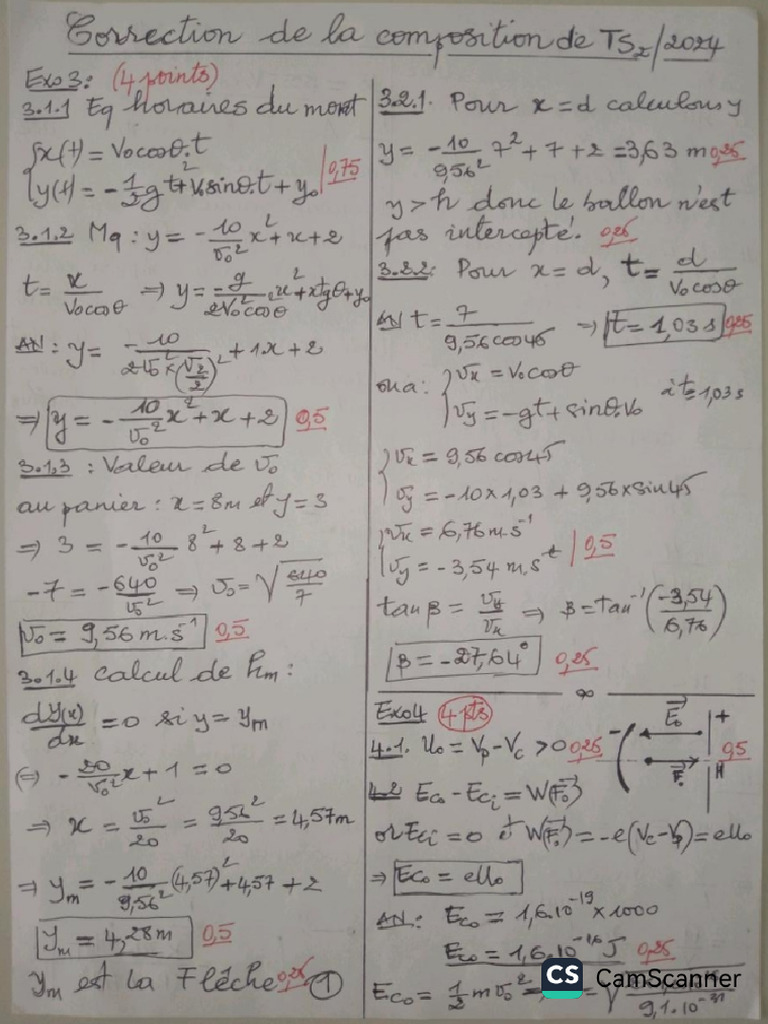 Correction de la composition de TS2/2024
Exo3: (4 points)
3.1.1 Eq horaires du mvt
{x(t) = V₀cosθ.t
{y(t) = -1/2 gt² + V₀sinθ.t + y₀ 0,75
3.1.2 Mq : y = -10/v₀² x² + x + 2
t = x/V₀cosθ ⇒ y = -g/2V₀²cos²θ .x² + xtgθ + y₀
AN : y = -10/2v₀²×(√2/2)² + 1x + 2
⇒ y = -10/v₀² x² + x + 2 0,5
3.1.3 : Valeur de v₀
au panier : x = 8m et y = 3
⇒ 3 = -10/v₀² 8² + 8 + 2
-7 = -640/v₀² ⇒ v₀ = √640/7
v₀ = 9,56 m.s⁻¹ 0,5
3.1.4 calcul de hm :
dy(x)/dx = 0 si y = ym
(=) -20/v₀² x + 1 = 0
⇒ x = v₀²/20 = 9,56²/20 = 4,57m
⇒ ym = -10/9,56² (4,57)² + 4,57 + 2
ym = 4,28m 0,5
ym est la Flêche 0,25 1
3.2.1. Pour x = d calculons y
y = -10/9,56² 7² + 7 + 2 = 3,63 m 0,25
y > h donc le ballon n'est
pas intercepté. 0,25
3.2.2: Pour x = d, t = d/V₀cosθ
AN t = 7/9,56cos45 ⇒ t = 1,03s 0,25
on a : {vx = V₀cosθ
{vy = -gt + sinθ.V₀ à t = 1,03s
{vx = 9,56 cos45
{vy = -10×1,03 + 9,56×sin45
{vx = 6,76 m.s⁻¹
{vy = -3,54 m.s⁻¹ 0,5
tanβ = vy/vx ⇒ β = tan⁻¹(-3,54/6,76)
β = -27,64° 0,25
∞
Exo4 4pts
4.1. U₀ = Vp - Vc > 0 0,25
- E₀ +
F₀ H 0,5
4.2 Ec₀ - Eci = W(F₀)
or Eci = 0 et W(F₀) = -e(Vc - Vp) = eU₀
⇒ Ec₀ = eU₀
AN: Ec₀ = 1,6.10⁻¹⁹ × 1000
Ec₀ = 1,6.10⁻¹⁶ J 0,25
Ec₀ = 1/2 mv₀²
9,1.10⁻³¹
CS CamScanner